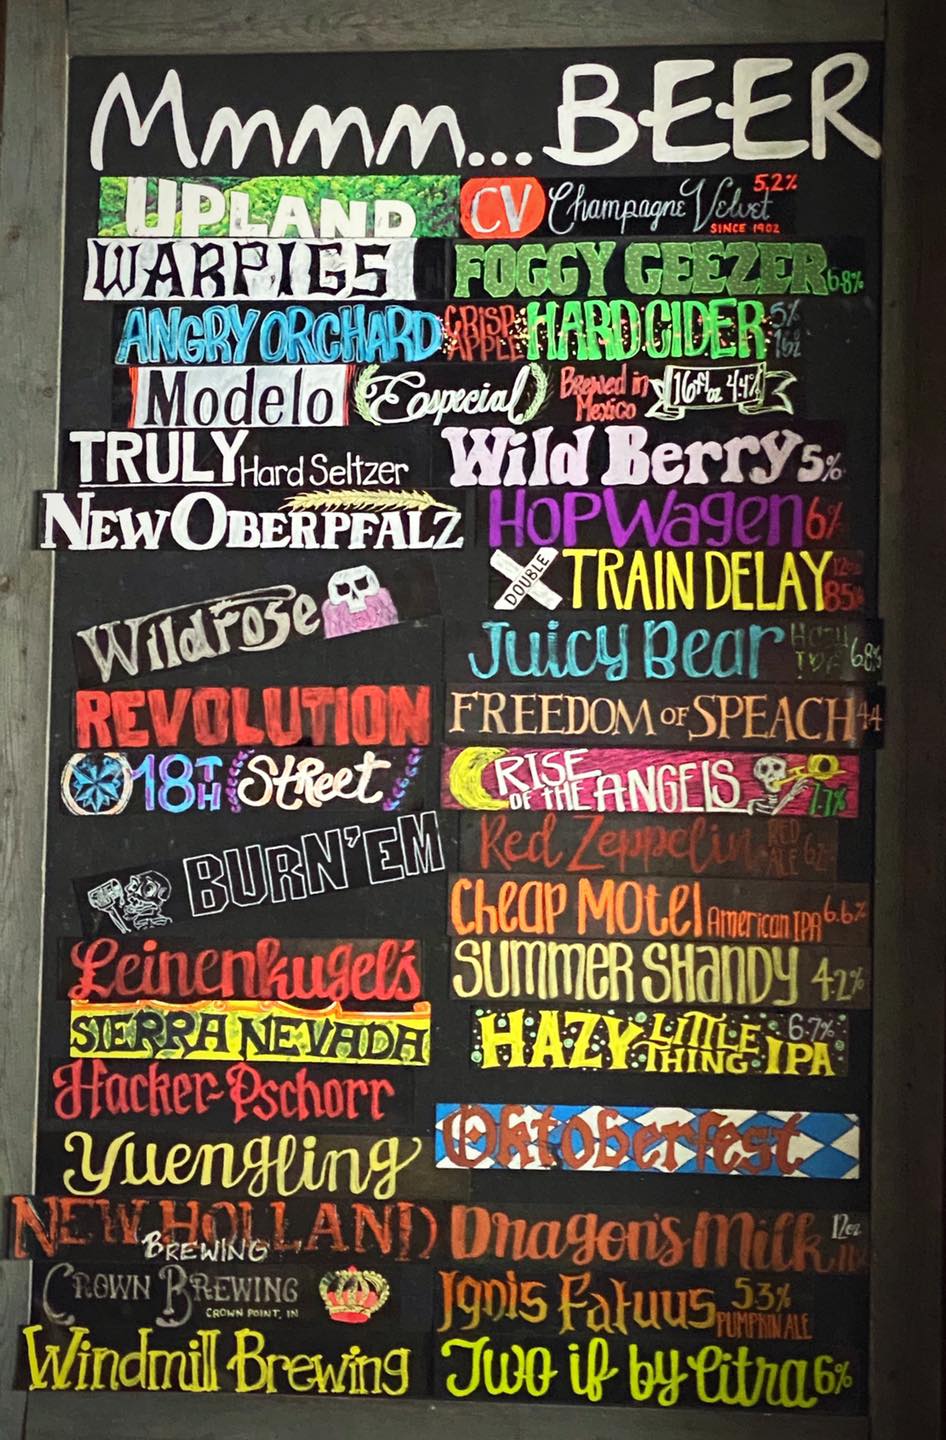 Mmmm...BEER
UPLAND CV Champagne Velvet 5.2% SINCE 1902
WARPIGS FOGGY GEEZER 6.8%
ANGRY ORCHARD CRISP APPLE HARD CIDER 5% 16oz
Modelo Especial Brewed in Mexico 16 fl oz 4.4%
TRULY Hard Seltzer Wild Berry 5%
NEW OBERPFALZ HOPWagen 6%
DOUBLE TRAIN DELAY 12oz
Wildrose Juicy Bear Hazy IPA 6.8%
REVOLUTION FREEDOM OF SPEACH 4.4
18TH Street RISE OF THE ANGELS 7.7%
Red Zeppelin RED ALE
BURN'EM
Cheap Motel American IPA 6.6%
Leinenkugel's SUMMER SHANDY 4.2%
SIERRA NEVADA HAZY LITTLE THING IPA 6.7%
Hacker-Pschorr Oktoberfest
Yuengling
NEW HOLLAND BREWING Dragon's Milk 12oz
CROWN BREWING CROWN POINT, IN Ignis Fatuus 5.3% PUMPKIN ALE
Windmill Brewing Two if by Citra 6%